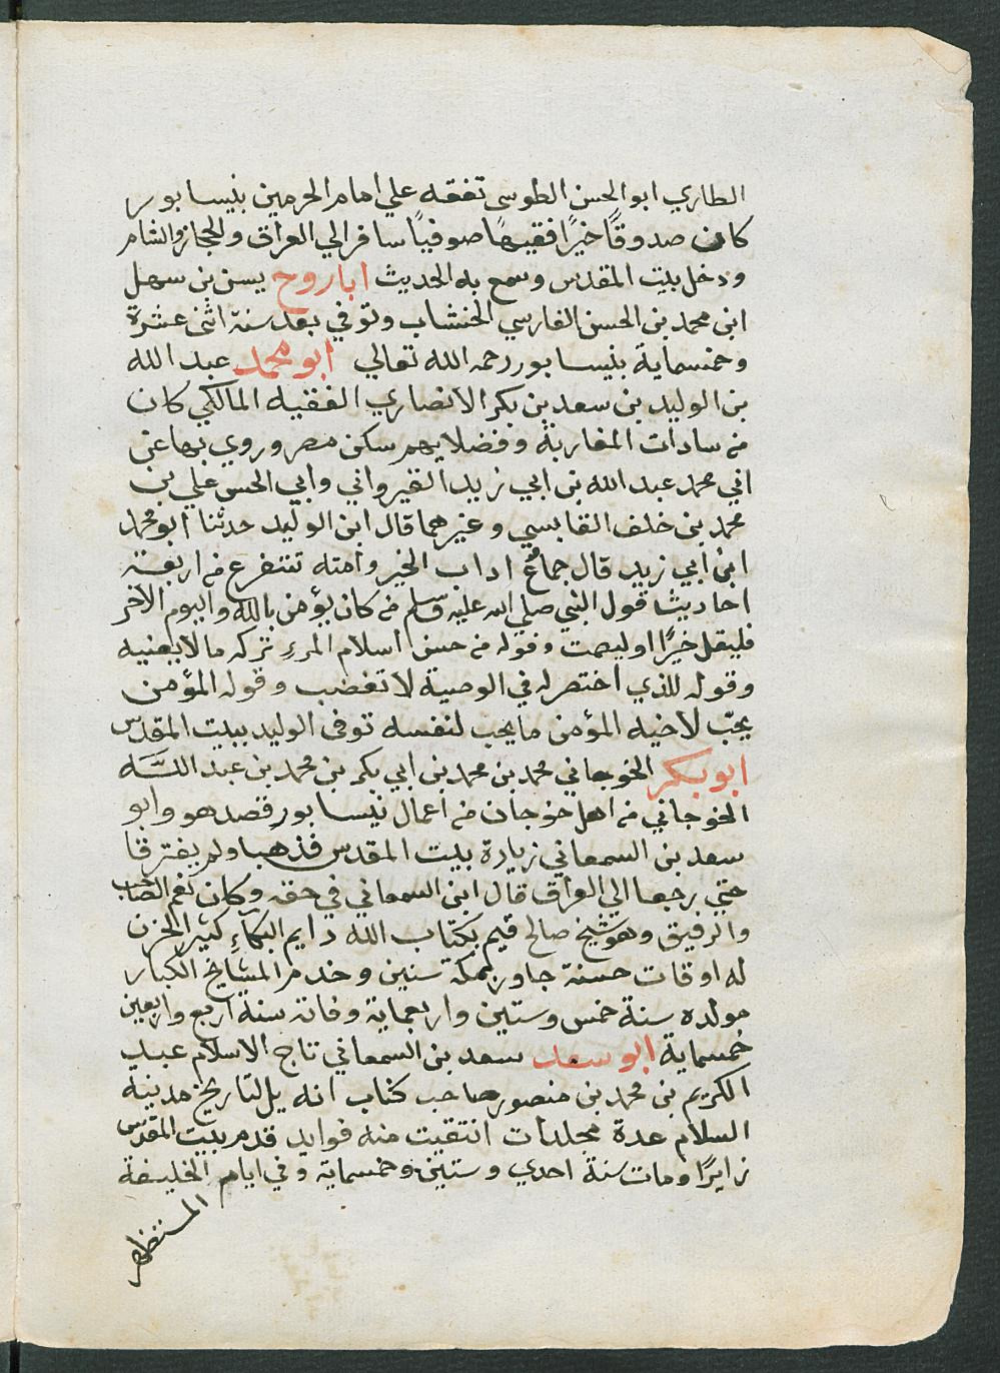 الطاري ابو الحسن الطوسي تفقه علي امام الحرمين بنيسابور
كان صدوقًا خيرًا فقيهًا صوفيًا سافر الي العراق والحجاز والشام
ودخل بيت المقدس وسمع به الحديث اباروح يسن بن سهل
ابن محمد بن الحسن الفارسي الخشاب وتوفي بعد سنة اثني عشرة
وخمسماية بنيسابور رحمه الله تعالي ابو محمد عبد الله
بن الوليد بن سعد بن بكر الانصاري الفقيه المالكي كان
من سادات المغاربة وفضلايهم سكن مصر وروي بها عن
ابي محمد عبد الله بن ابي زيد القيرواني وابي الحسن علي بن
محمد بن خلف القابسي وغيرهما قال ابن الوليد حدثنا ابو محمد
ابن ابي زيد قال جماع اداب الخير وامته تتفرع من اربعة
احاديث قول النبي صلي الله عليه وسلم من كان يؤمن بالله واليوم الاخر
فليقل خيرًا او ليصمت وقوله من حسن اسلام المرءِ تركه ما لا يعنيه
وقوله للذي اختصر له في الوصية لا تغضب وقوله المؤمن
يحبّ لاخيه المؤمن ما يحب لنفسه توفي الوليد ببيت المقدس
ابو بكر الخوجاني محمد بن محمد بن ابي بكر بن محمد بن عبد الله
الخوجاني من اهل خوجان من اعمال نيسابور قصد هو وابو
سعد بن السمعاني زيارة بيت المقدس فذهبا ولم يفترقا
حتي رجعا الي العراق قال ابن السمعاني في حقه وكان نعم الصاحب
والرفيق وهو شيخ صالح قيم بكتاب الله دايم البكاءِ كثير الحزن
له اوقات حسنة جاور بمكة سنين وخدم المشايخ الكبار
مولده سنة خمس وستين واربعماية وفاته سنة اربع واربعين
خمسماية ابو سعد سعد بن السمعاني تاج الاسلام عبد
الكريم بن محمد بن منصور صاحب كتاب انه يل لتاريخ مدينة
السلام عدة مجلدات انتقيت منه فوايد قدم بيت المقدس
زايرًا ومات سنة احدي وستين وخمسماية وفي ايام الخليفة
المستظهر